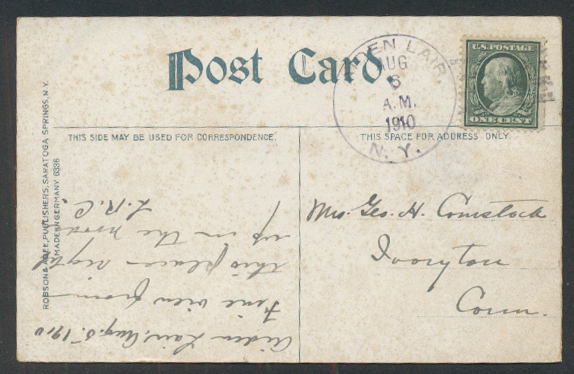 Post Card.
THIS SIDE MAY BE USED FOR CORRESPONDENCE.
THIS SPACE FOR ADDRESS ONLY.
ROBSON & ADEE, PUBLISHERS, SARATOGA SPRINGS, N.Y.
MADE IN GERMANY
DEN LAIR
AUG
6
A.M.
1910
N. Y.
U.S. POSTAGE
ONE CENT
Mrs. Geo. H. Comstock
Ivoryton
Conn.
Aiden Lair, Aug. 5" 1910
Fine view from
this place right
up in the wood
L. R. C.